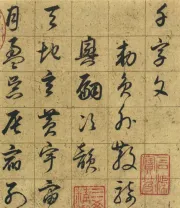 千字文
勅員外散騎
興嗣次韻
天地玄黃宇宙
月盈昃辰宿列